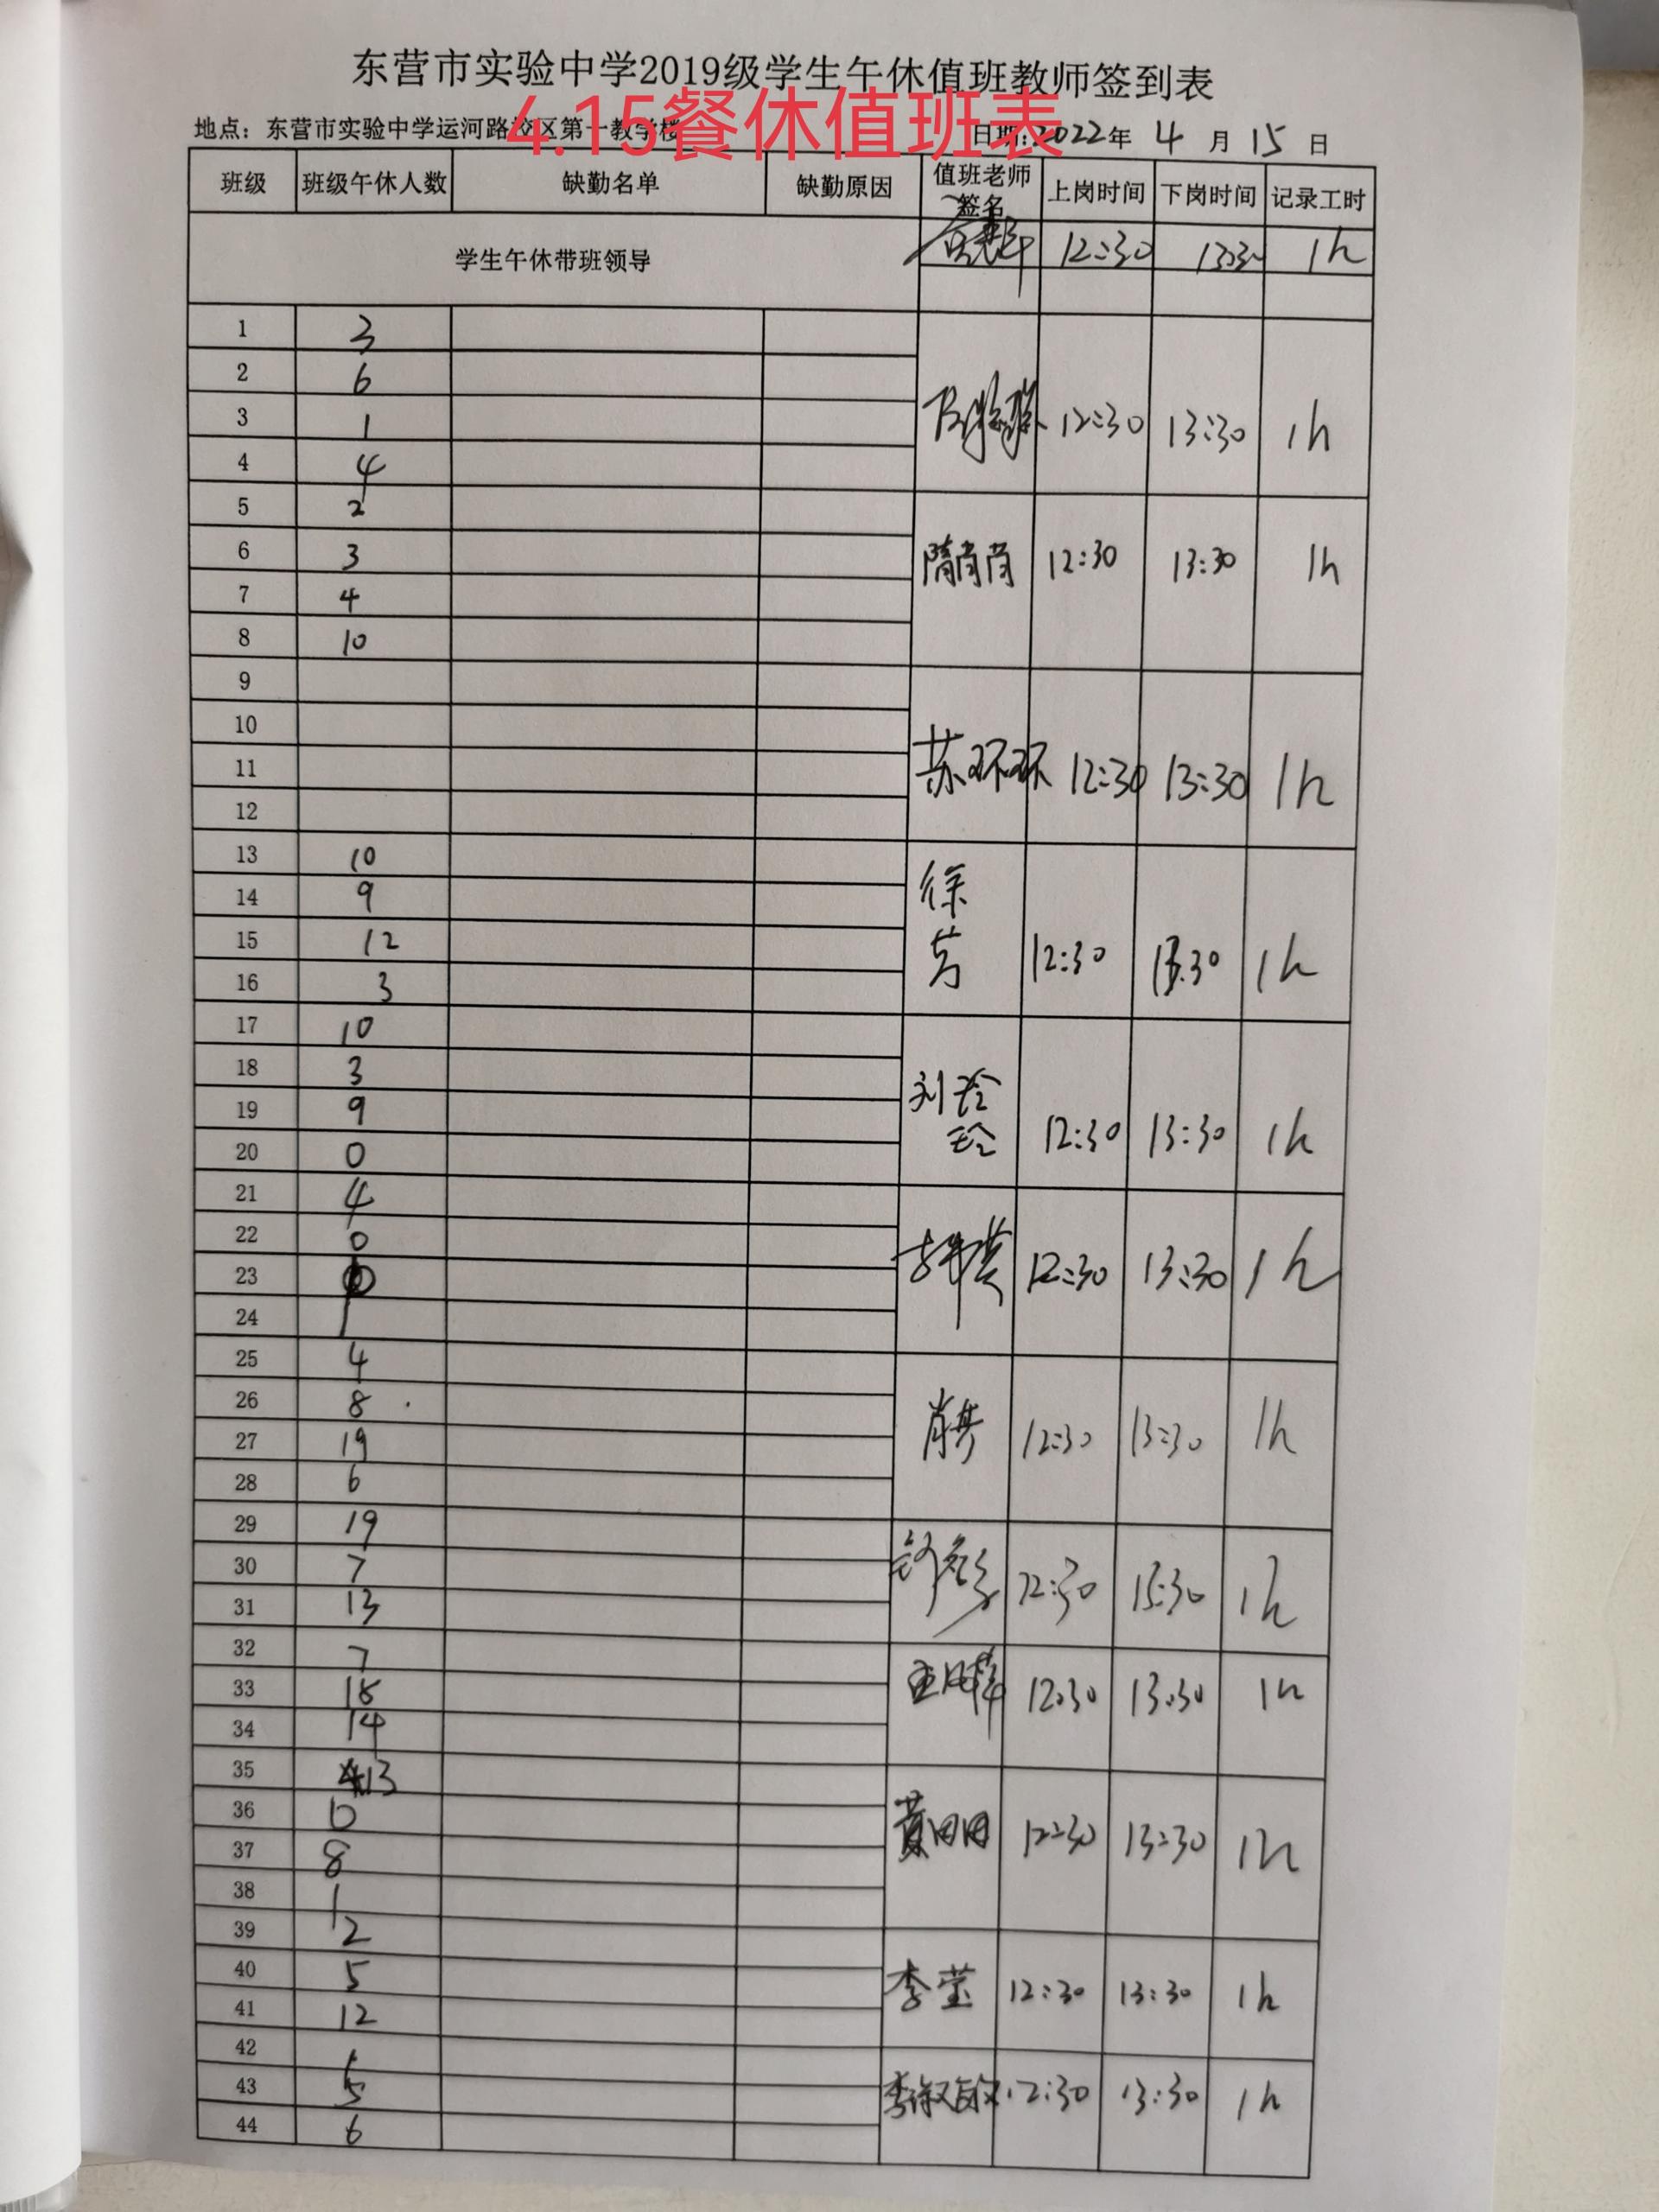 东营市实验中学2019级学生午休值班教师签到表
4.15餐休值班表
地点：东营市实验中学运河路校区第一教学楼 日期:2022年 4 月 15 日
班级 班级午休人数 缺勤名单 缺勤原因 值班老师签名 上岗时间 下岗时间 记录工时
学生午休带班领导 12:30 13:30 1h
1 3
2 6
3 1 12:30 13:30 1h
4 4
5 2
6 3 隋肖肖 12:30 13:30 1h
7 4
8 10
9
10
11 苏环环 12:30 13:30 1h
12
13 10
14 9
15 12 徐芳 12:30 13:30 1h
16 3
17 10
18 3
19 9 刘玲玲 12:30 13:30 1h
20 0
21 4
22 0
23 12:30 13:30 1h
24 1
25 4
26 8
27 19 12:30 13:30 1h
28 6
29 19
30 7 12:30 13:30 1h
31 13
32 7
33 18 12:30 13:30 1h
34 14
35 13
36 0
37 8 黄田田 12:30 13:30 1h
38 1
39 2
40 5 李莹 12:30 13:30 1h
41 12
42 1
43 5 李淑敏 12:30 13:30 1h
44 6